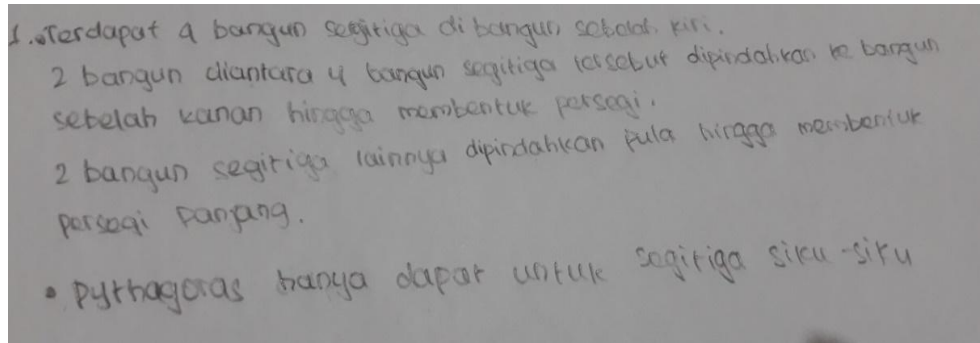 1. • Terdapat 4 bangun segitiga di bangun sebelah kiri.
2 bangun diantara 4 bangun segitiga tersebut dipindahkan ke bangun
sebelah kanan hingga membentuk persegi.
2 bangun segitiga lainnya dipindahkan pula hingga membentuk
persegi panjang.
• pythagoras hanya dapat untuk segitiga siku-siku